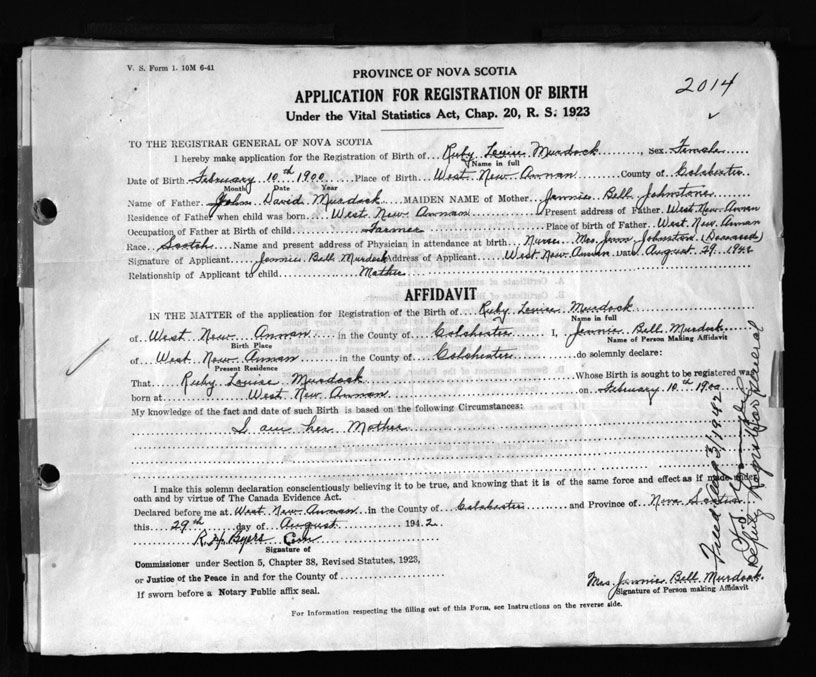 V. S. Form 1. 10M 6-41
PROVINCE OF NOVA SCOTIA
2014
APPLICATION FOR REGISTRATION OF BIRTH
Under the Vital Statistics Act, Chap. 20, R. S. 1923
TO THE REGISTRAR GENERAL OF NOVA SCOTIA
I hereby make application for the Registration of Birth of Ruby Louise Murdock, Sex Female
Name in full
Date of Birth February 10th 1900 Place of Birth West New Annan County of Colchester
Month Date Year
Name of Father John David Murdock MAIDEN NAME of Mother Jennie Bell Johnstone
Residence of Father when child was born West New Annan Present address of Father West New Annan
Occupation of Father at Birth of child Farmer Place of birth of Father West New Annan
Race Scotch Name and present address of Physician in attendance at birth Nurse Mrs. Johnston (Deceased)
Signature of Applicant Jennie Bell Murdock Address of Applicant West New Annan Date August 29 1942
Relationship of Applicant to child Mother
AFFIDAVIT
IN THE MATTER of the application for Registration of the Birth of Ruby Louise Murdock
Name in full
of West New Annan in the County of Colchester I, Jennie Bell Murdock
Birth Place Name of Person Making Affidavit
of West New Annan in the County of Colchester do solemnly declare:
Present Residence
That Ruby Louise Murdock Whose Birth is sought to be registered was
born at West New Annan on February 10th 1900
My knowledge of the fact and date of such Birth is based on the following Circumstances:
I am her Mother
I make this solemn declaration conscientiously believing it to be true, and knowing that it is of the same force and effect as if made under
oath and by virtue of The Canada Evidence Act.
Declared before me at West New Annan in the County of Colchester and Province of Nova Scotia
this 29th day of August 1942
R. H. Byers Com
Signature of
Commissioner under Section 5, Chapter 38, Revised Statutes, 1923,
or Justice of the Peace in and for the County of
Mrs. Jennie Bell Murdock.
Signature of Person making Affidavit
If sworn before a Notary Public affix seal.
For Information respecting the filling out of this Form, see Instructions on the reverse side.
Filed Sep 3/1942
Deputy Registrar General